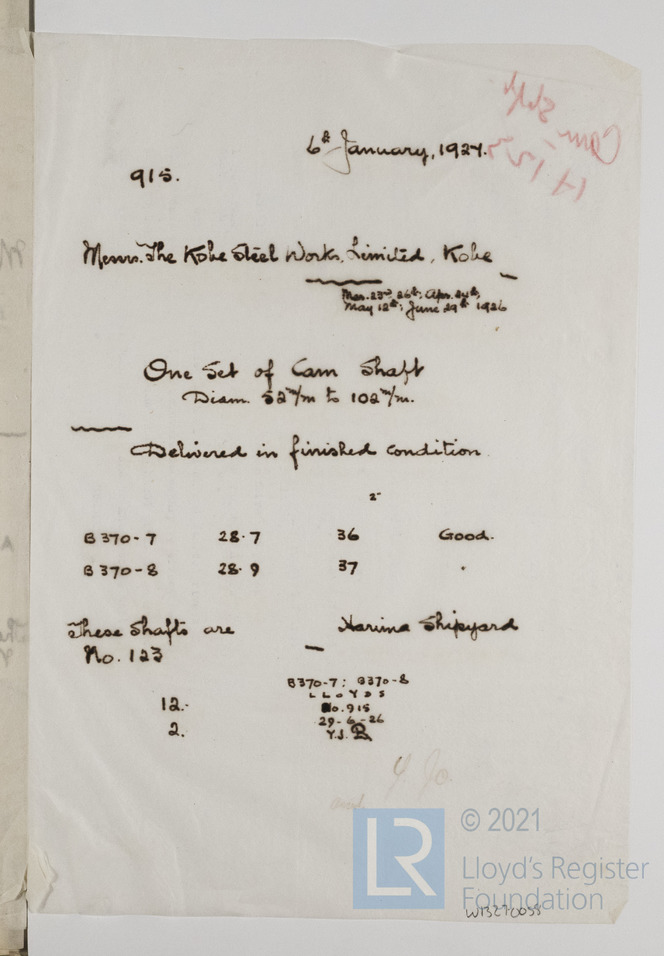 6th January, 1927.
915.
Messrs. The Kobe Steel Works, Limited, Kobe
Mar. 23rd, 26th; Apr. 24th;
May 12th; June 29th 1926
One Set of Cam Shaft
Diam. 52 m/m to 102 m/m.
Delivered in finished condition
2"
B370-7 28.7 36 Good.
B370-8 28.9 37 "
These Shafts are Harima Shipyard
No. 123
B370-7: B370-8
LLOYDS
12. No. 915
29-6-26
2. Y.J.
© 2021
LR
Lloyd's Register
Foundation